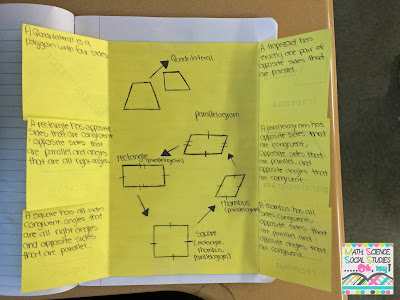 A Quadrilateral is a
polygon with four sides.
Quadrilateral
A trapezoid has
exactly one pair of
opposite sides that
are parallel.
parallelogram
A rectangle has opposite
sides that are congruent,
opposite sides that
are parallel and angles
that are all right angles.
rectangle (parallelogram)
A parallelogram has
opposite sides that
are congruent,
opposite sides that
are parallel, and
opposite angles that
are congruent.
rhombus (parallelogram)
A square has all sides
congruent, angles that
are all right angles
and opposite sides
that are parallel.
square
(rectangle,
rhombus,
parallelogram)
A rhombus has all
sides congruent,
opposite sides that
are parallel, and
opposite angles that
are congruent.
MATH SCIENCE
SOCIAL STUDIES
.....Oh, my!